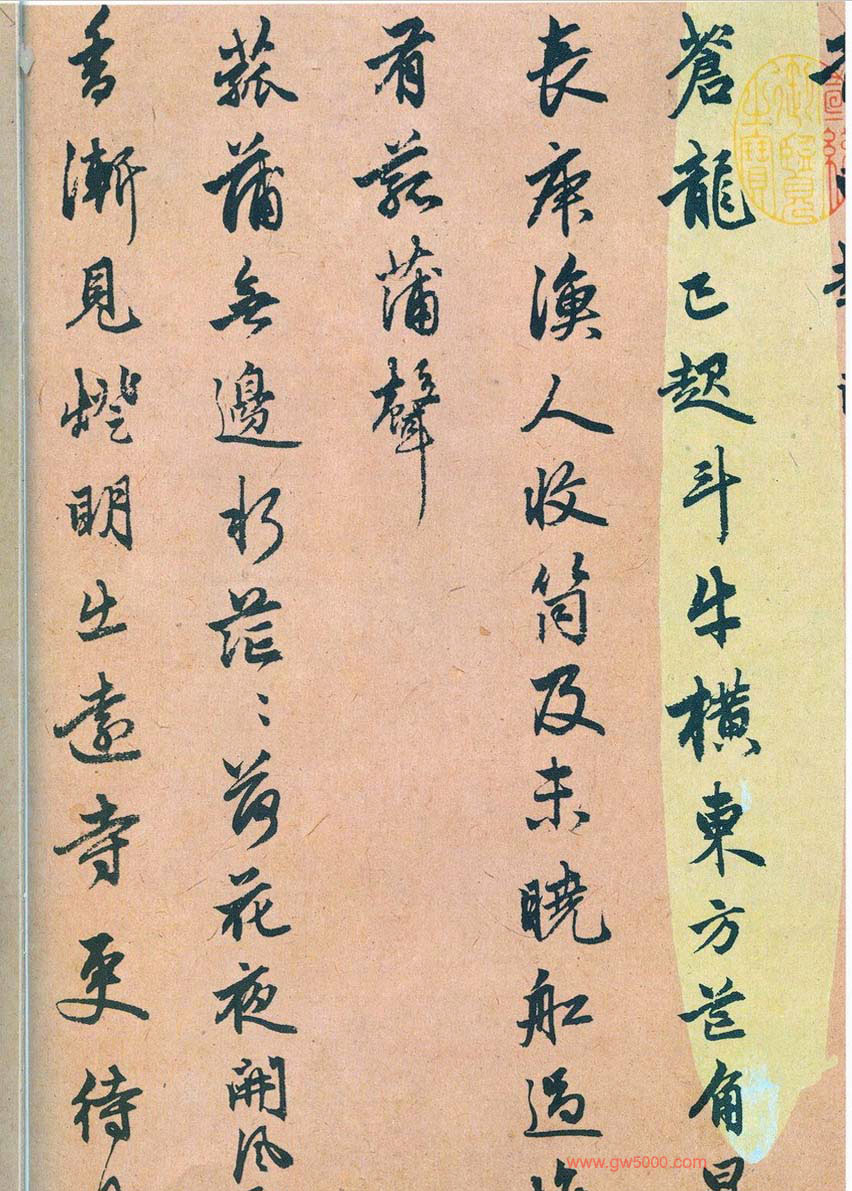 蒼龍已起斗牛橫東方芒角
長庚漁人收筒及未曉船過
有菰蒲聲
菰蒲無邊水茫〻荷花夜開風
香漸見燈明出遠寺更待
www.gw5000.com